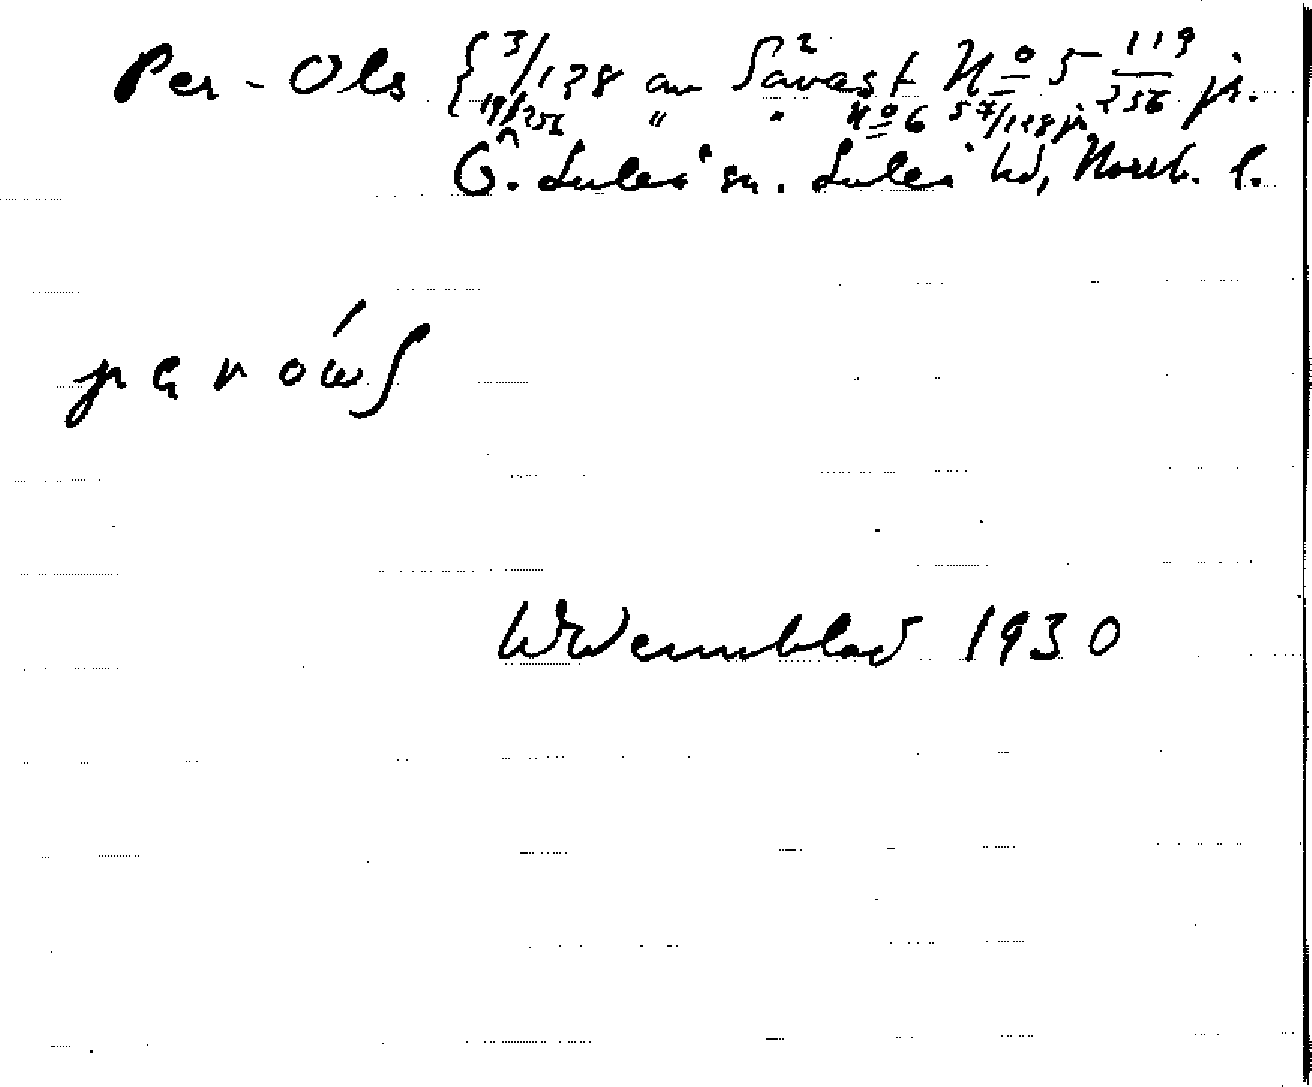 Per-Ols { 3/128 av Sävast No 5 119/256 jr.
19/256 " " No 6 57/128 jr
Ö. Luleå sn. Luleå hd, Norrb. l.
W Wennblad 1930